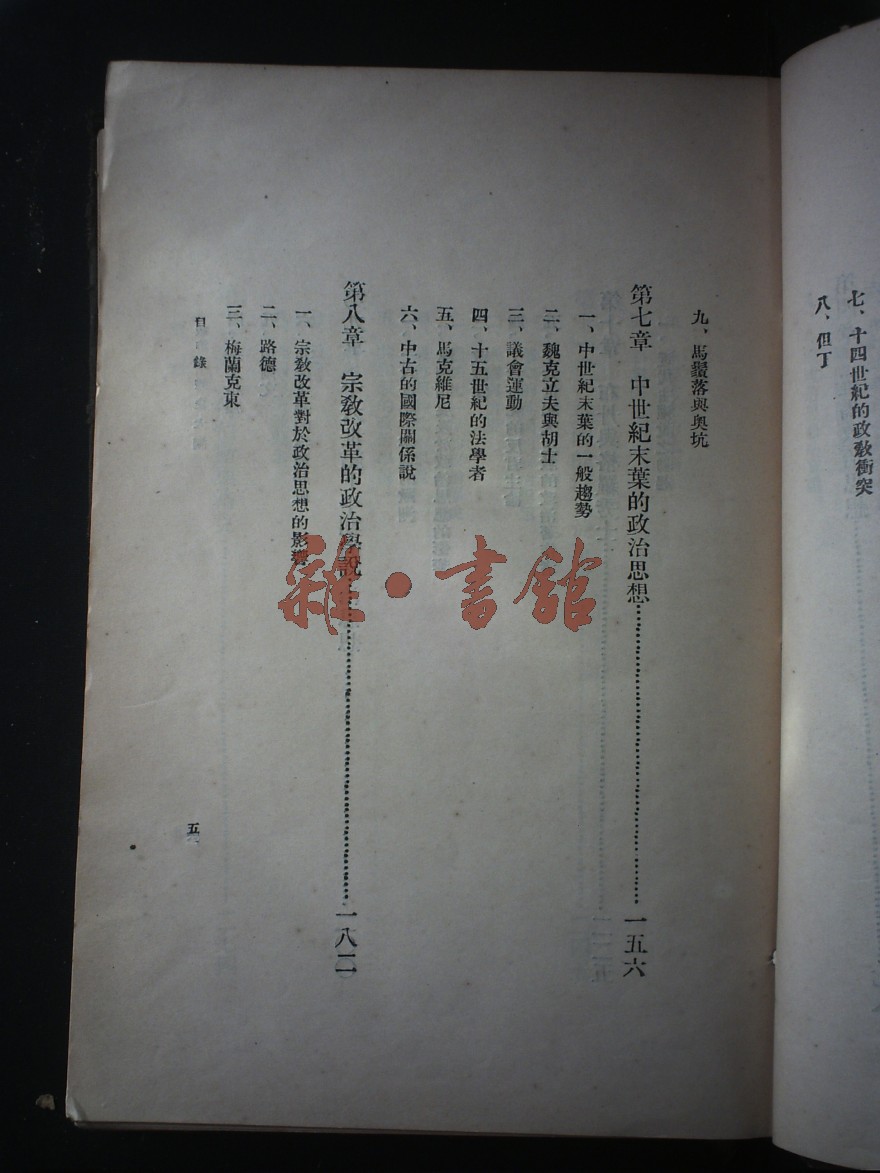 七、十四世紀的政教衝突
八、但丁
九、馬鑿落與奧坑
第七章 中世紀末葉的政治思想 一五六
一、中世紀末葉的一般趨勢
二、魏克立夫與胡士
三、議會運動
四、十五世紀的法學者
五、馬克維尼
六、中古的國際關係說
第八章 宗教改革的政治學說 一八二
一、宗教改革對於政治思想的影響
二、路德
三、梅蘭克東
目錄
五
雜·書館